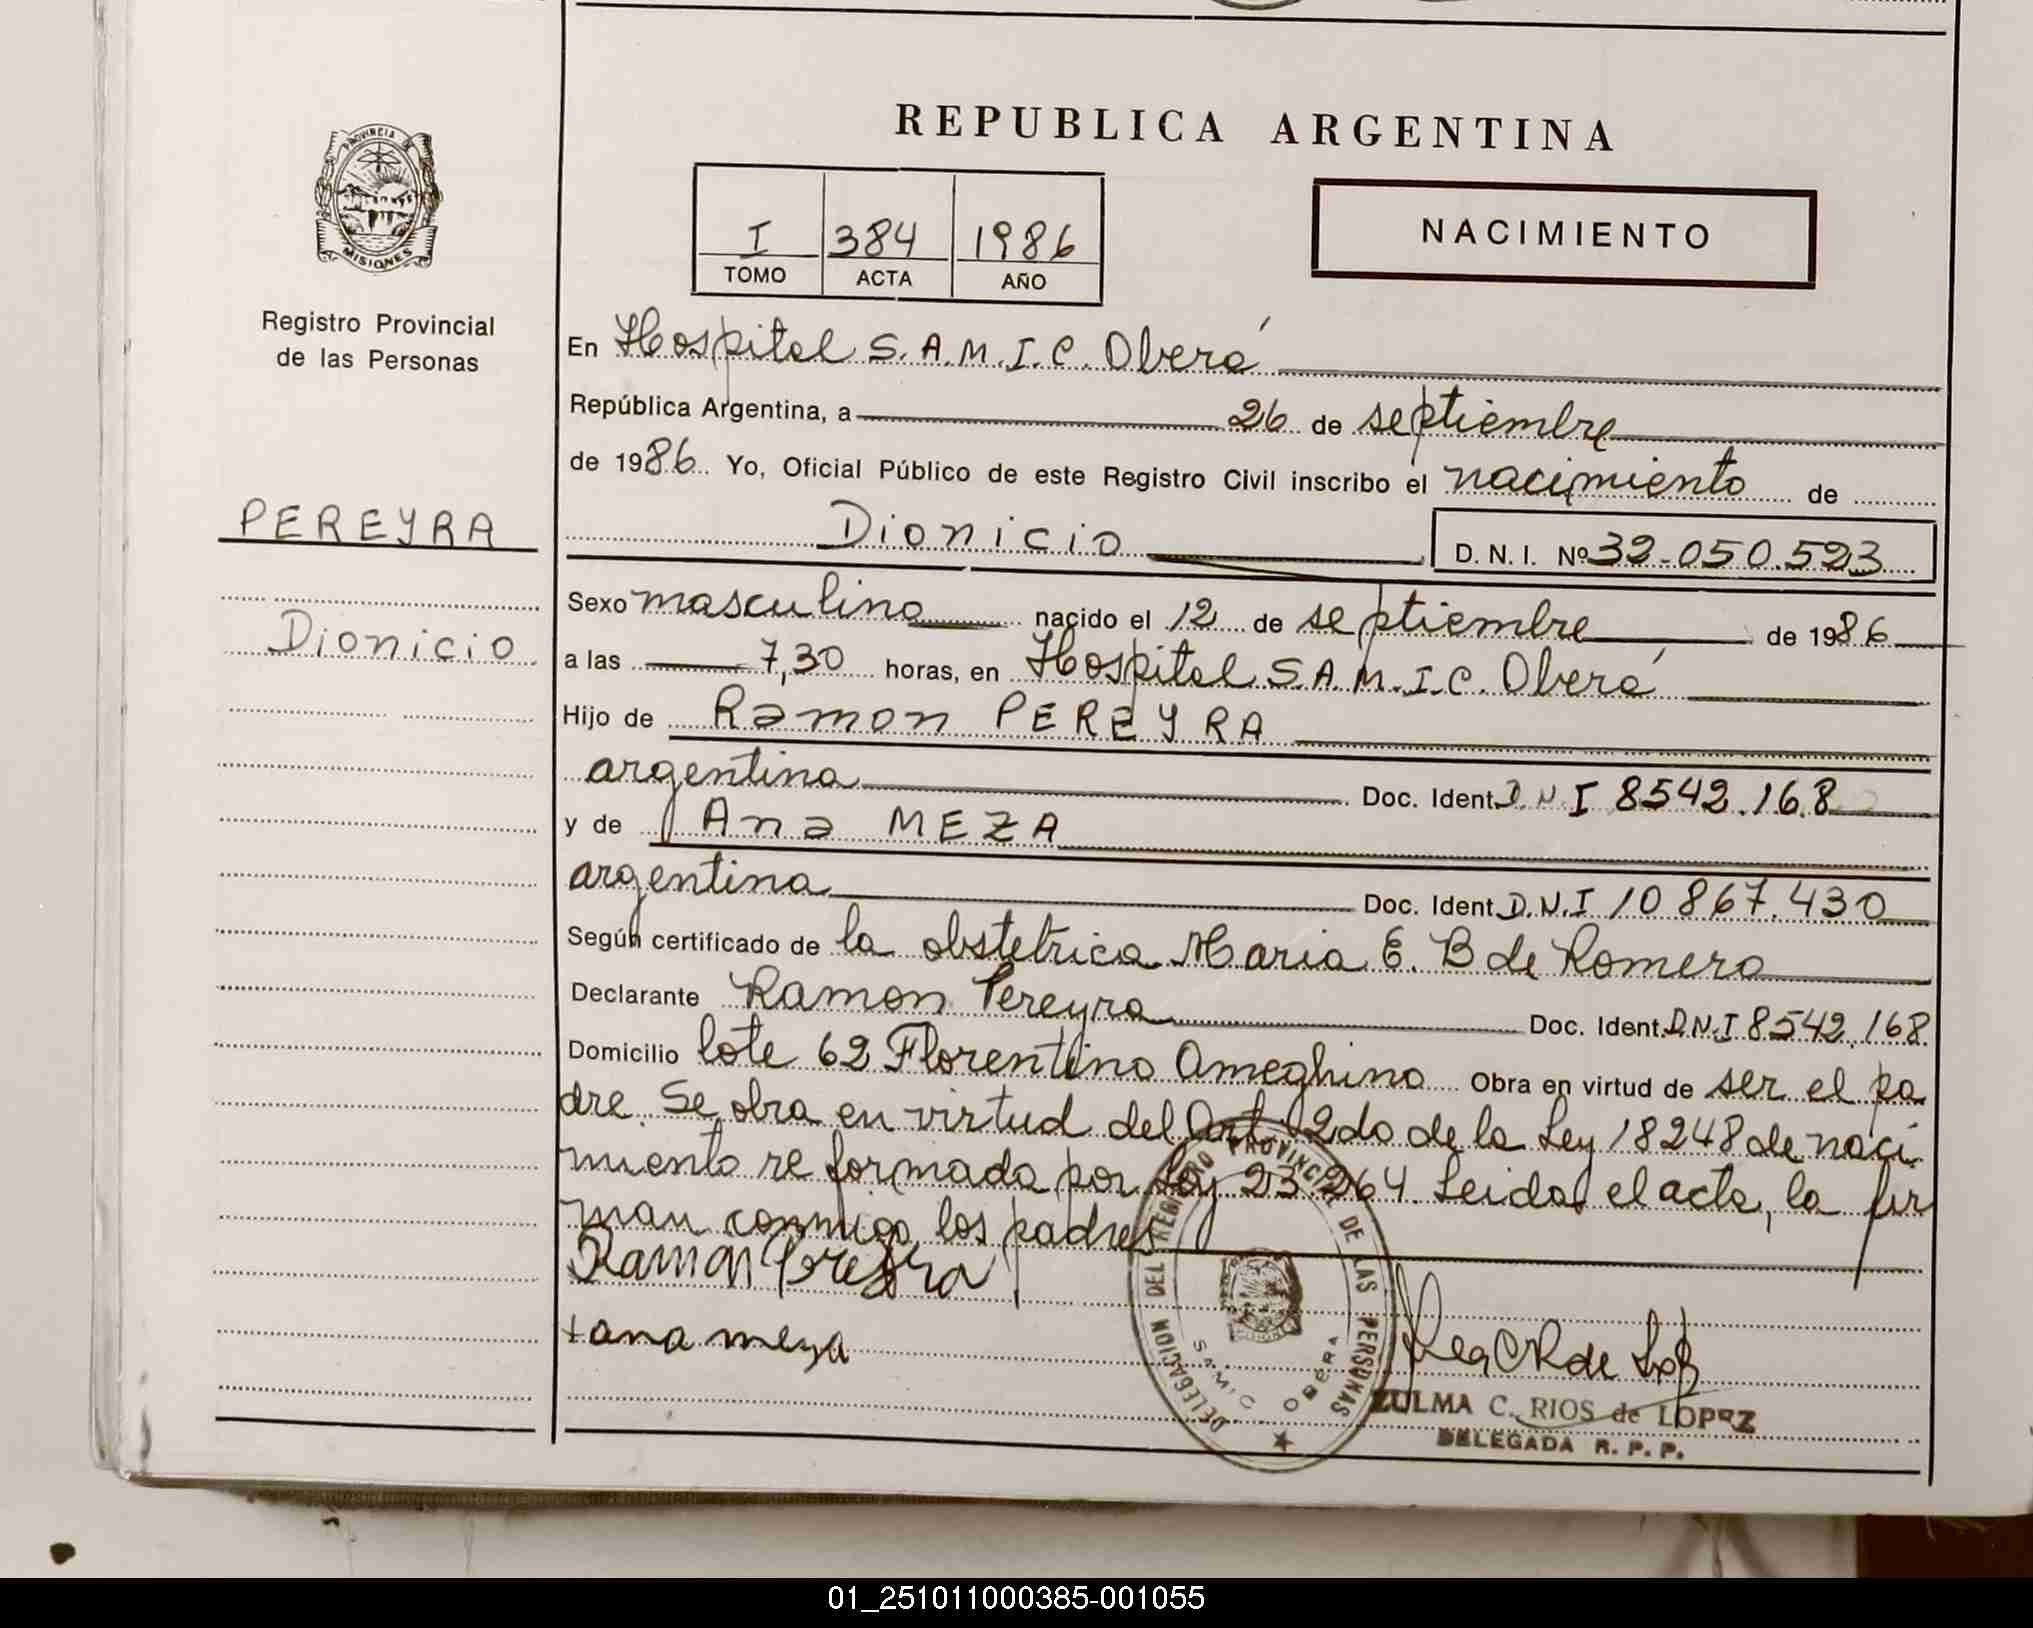 REPUBLICA ARGENTINA
PROVINCIA DE
MISIONES
Registro Provincial
de las Personas
I 384 1986
TOMO ACTA AÑO
NACIMIENTO
En Hospital S.A.M.I.C. Oberá
República Argentina, a 26 de septiembre
de 1986 Yo, Oficial Público de este Registro Civil inscribo el nacimiento de
PEREYRA
Dionicio
Dionicio D. N. I. Nº 32.050.523
Sexo masculino nacido el 12 de septiembre de 1986
a las 7,30 horas, en Hospital S.A.M.I.C. Oberá
Hijo de Ramon PEREYRA
argentina Doc. Ident. D.N.I 8542.168
y de Ana MEZA
argentina Doc. Ident. D.N.I 10867.430
Según certificado de la obstetrica Maria E. B de Romero
Declarante Ramon Pereyra Doc. Ident. D.N.I 8542.168
Domicilio lote 62 Florentino Ameghino Obra en virtud de ser el pa
dre. Se obra en virtud del Art 2do de la Ley 18248 de naci
miento reformada por Ley 23.264. Leida el acta, la fir
man conmigo los padres
Ramon Pereyra
ana meza
DELEGACION DEL REGISTRO PROVINCIAL DE LAS PERSONAS
SAMIC OBERA
ZULMA C. RIOS de LOPEZ
DELEGADA R. P. P.
01_251011000385-001055